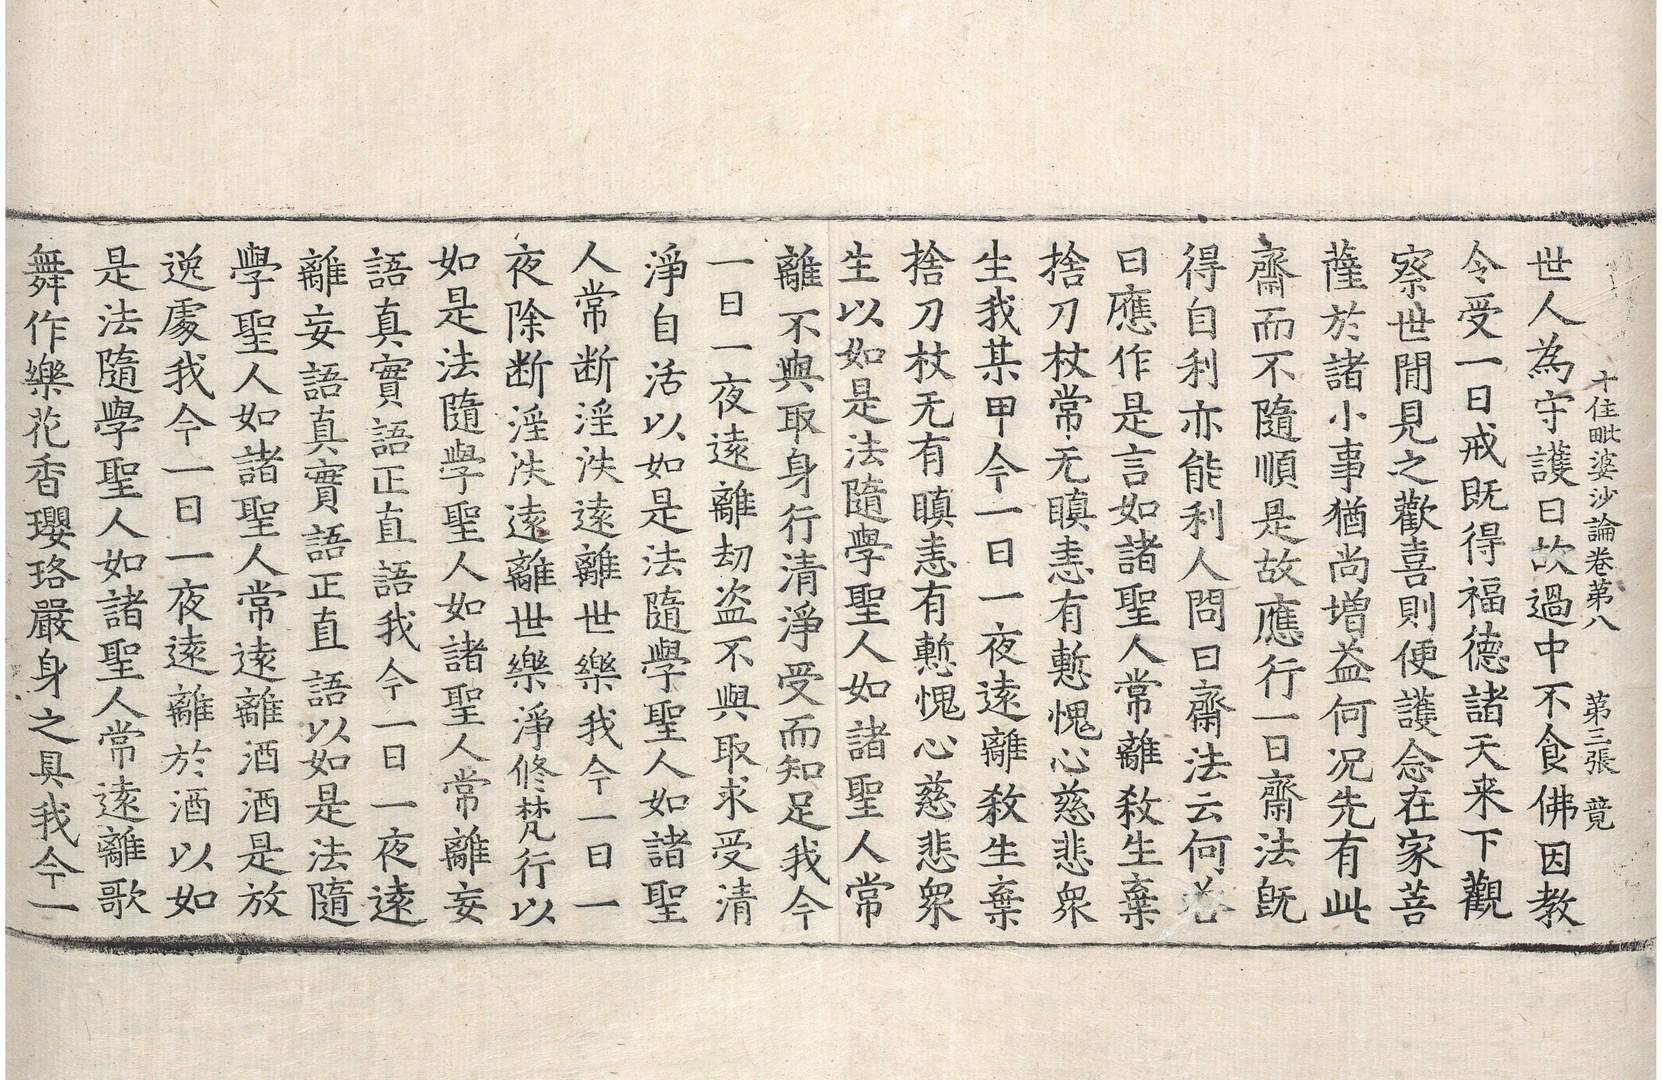 十住毗婆沙論卷第八 第三張 竟
世人為守護日故過中不食佛因教
令受一日戒既得福德諸天来下觀
察世間見之歡喜則便護念在家菩
薩於諸小事猶尚增益何况先有此
齋而不隨順是故應行一日齋法既
得自利亦能利人問曰齋法云何荅
曰應作是言如諸聖人常離殺生棄
捨刀杖常无瞋恚有慙愧心慈悲衆
生我某甲今一日一夜遠離殺生棄
捨刀杖无有瞋恚有慙愧心慈悲衆
生以如是法隨學聖人如諸聖人常
離不與取身行清淨受而知足我今
一日一夜遠離劫盜不與取求受清
淨自活以如是法隨學聖人如諸聖
人常断淫泆遠離世樂我今一日一
夜除断淫泆遠離世樂淨修梵行以
如是法隨學聖人如諸聖人常離妄
語真實語正直語我今一日一夜遠
離妄語真實語正直語以如是法隨
學聖人如諸聖人常遠離酒酒是放
逸處我今一日一夜遠離於酒以如
是法隨學聖人如諸聖人常遠離歌
舞作樂花香瓔珞嚴身之具我今一